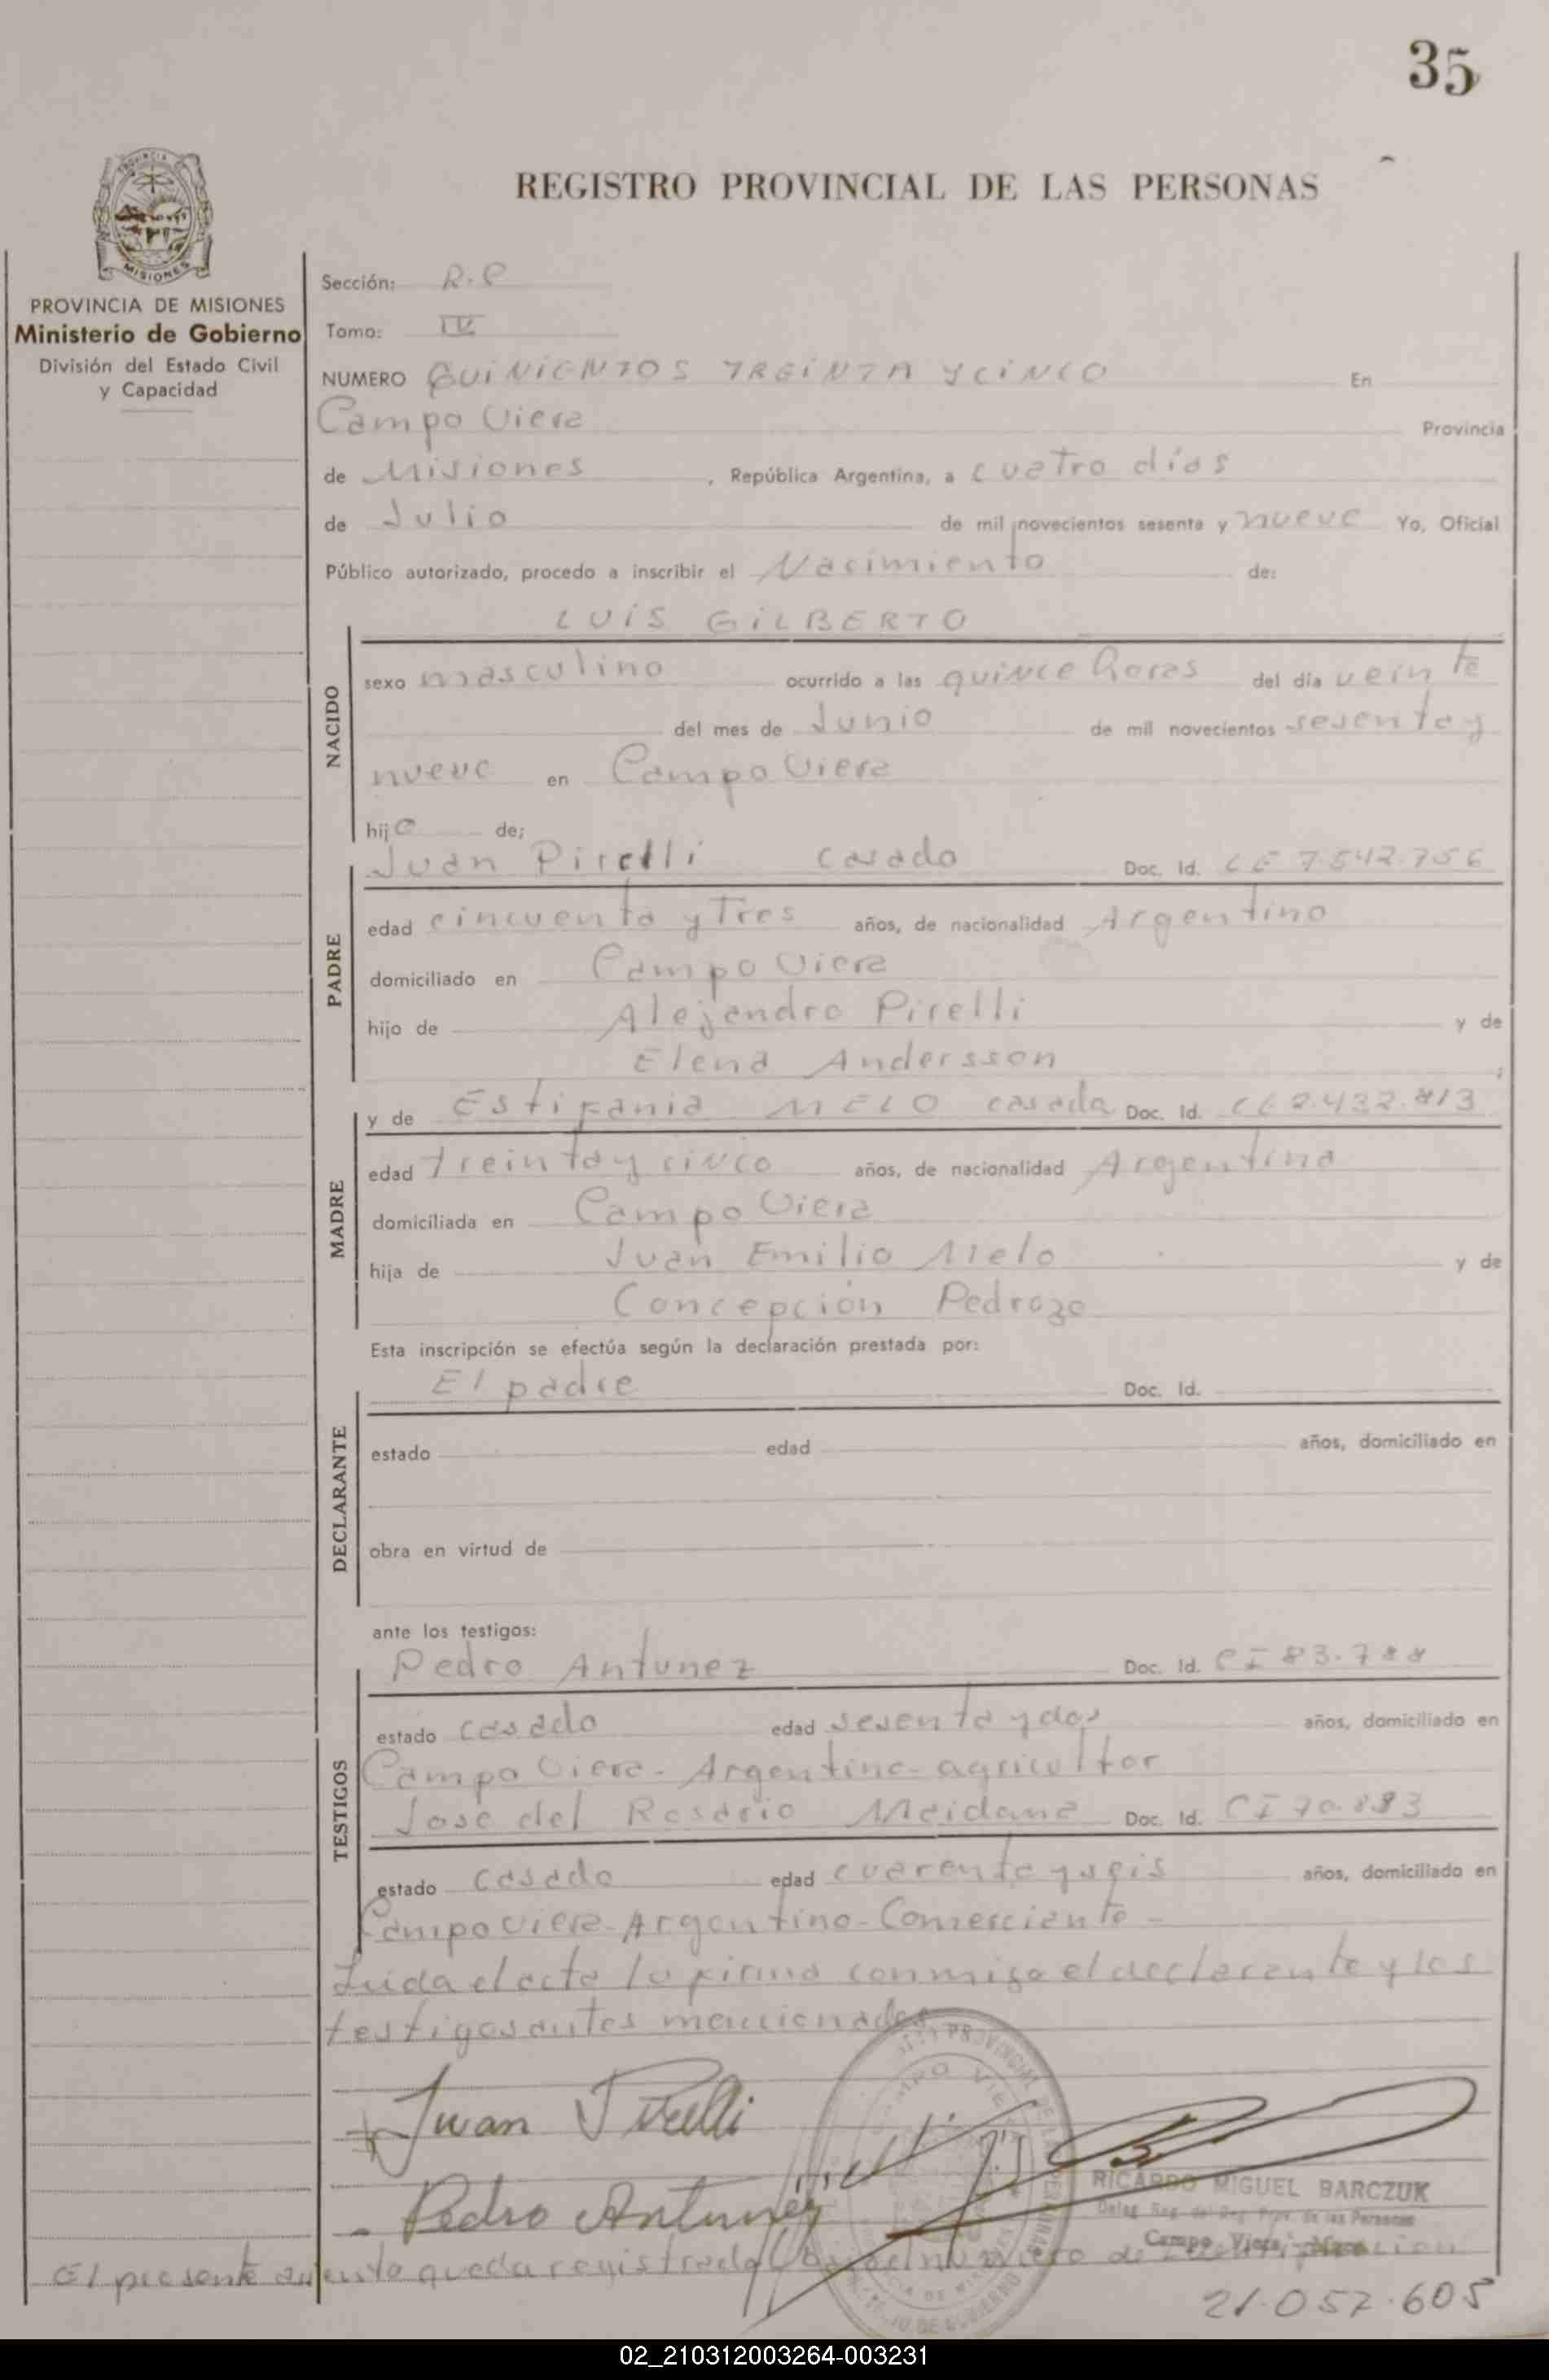 35
REGISTRO PROVINCIAL DE LAS PERSONAS
PROVINCIA
MISIONES
PROVINCIA DE MISIONES
Ministerio de Gobierno
División del Estado Civil
y Capacidad
Sección: R.P
Tomo: IV
NUMERO QUINIENTOS TREINTA Y CINCO En
Campo Viera Provincia
de Misiones , República Argentina, a cuatro días
de Julio de mil novecientos sesenta y nueve Yo, Oficial
Público autorizado, procedo a inscribir el Nacimiento de:
LUIS GILBERTO
NACIDO
sexo masculino ocurrido a las quince horas del día veinte
del mes de Junio de mil novecientos sesenta y
nueve en Campo Viera
hijo de;
PADRE
Juan Pirelli casado Doc. Id. LE 7.542.756
edad cincuenta y Tres años, de nacionalidad Argentino
domiciliado en Campo Viera
hijo de Alejandro Pirelli y de
Elena Andersson ;
MADRE
y de Estifania MELO casada Doc. Id. LC 2.432.813
edad treinta y cinco años, de nacionalidad Argentina
domiciliada en Campo Viera
hija de Juan Emilio Melo y de
Concepción Pedrozo
Esta inscripción se efectúa según la declaración prestada por:
DECLARANTE
El padre Doc. Id.
estado edad años, domiciliado en
obra en virtud de
ante los testigos:
TESTIGOS
Pedro Antunez Doc. Id. CI 83.788
estado casado edad sesenta y dos años, domiciliado en
Campo Viera - Argentino - agricultor
Jose del Rosario Maidana Doc. Id. CI 70.883
estado casado edad cuarenta y seis años, domiciliado en
Campo Viera - Argentino - Comerciante -
Leida el acta la firma conmigo el declarante y los
testigos antes mencionados
Juan Pirelli
Pedro Antunez
RICARDO MIGUEL BARCZUK
Deleg. Reg. del Reg. Prov. de las Personas
Campo Viera - Mnes.
El presente asiento queda registrado bajo el numero de identificacion
21.057.605
02_210312003264-003231